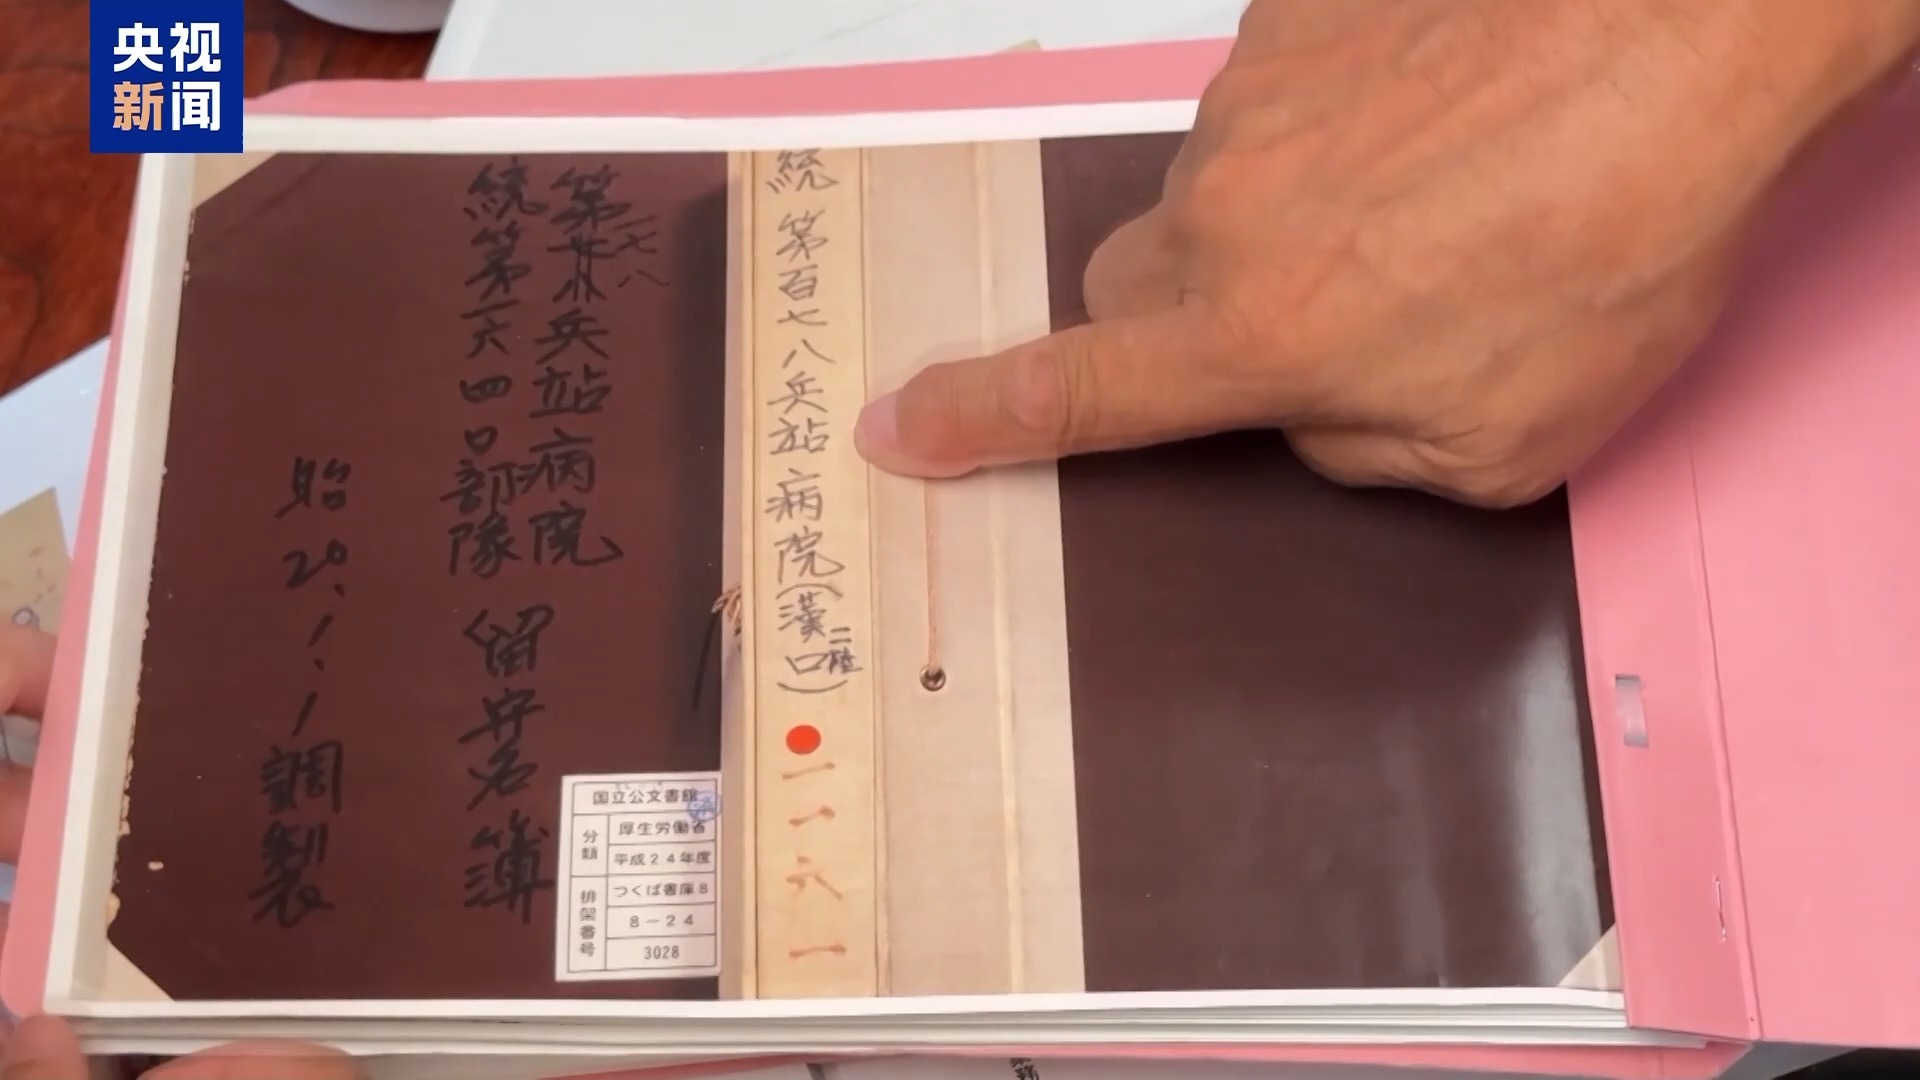 央视
新闻
統 第百七八兵站病院(漢口二陸)
一一六一
第一七八兵站病院
統第一六四〇部隊
留守名簿
始20.1.1調製
国立公文書館
分類
厚生労働省
平成24年度
排架番号
つくば書庫8
8-24
3028